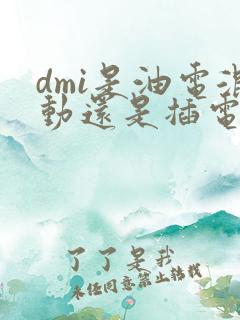 dmi是油電混
動還是插電
了了是我
未经同意禁止转载